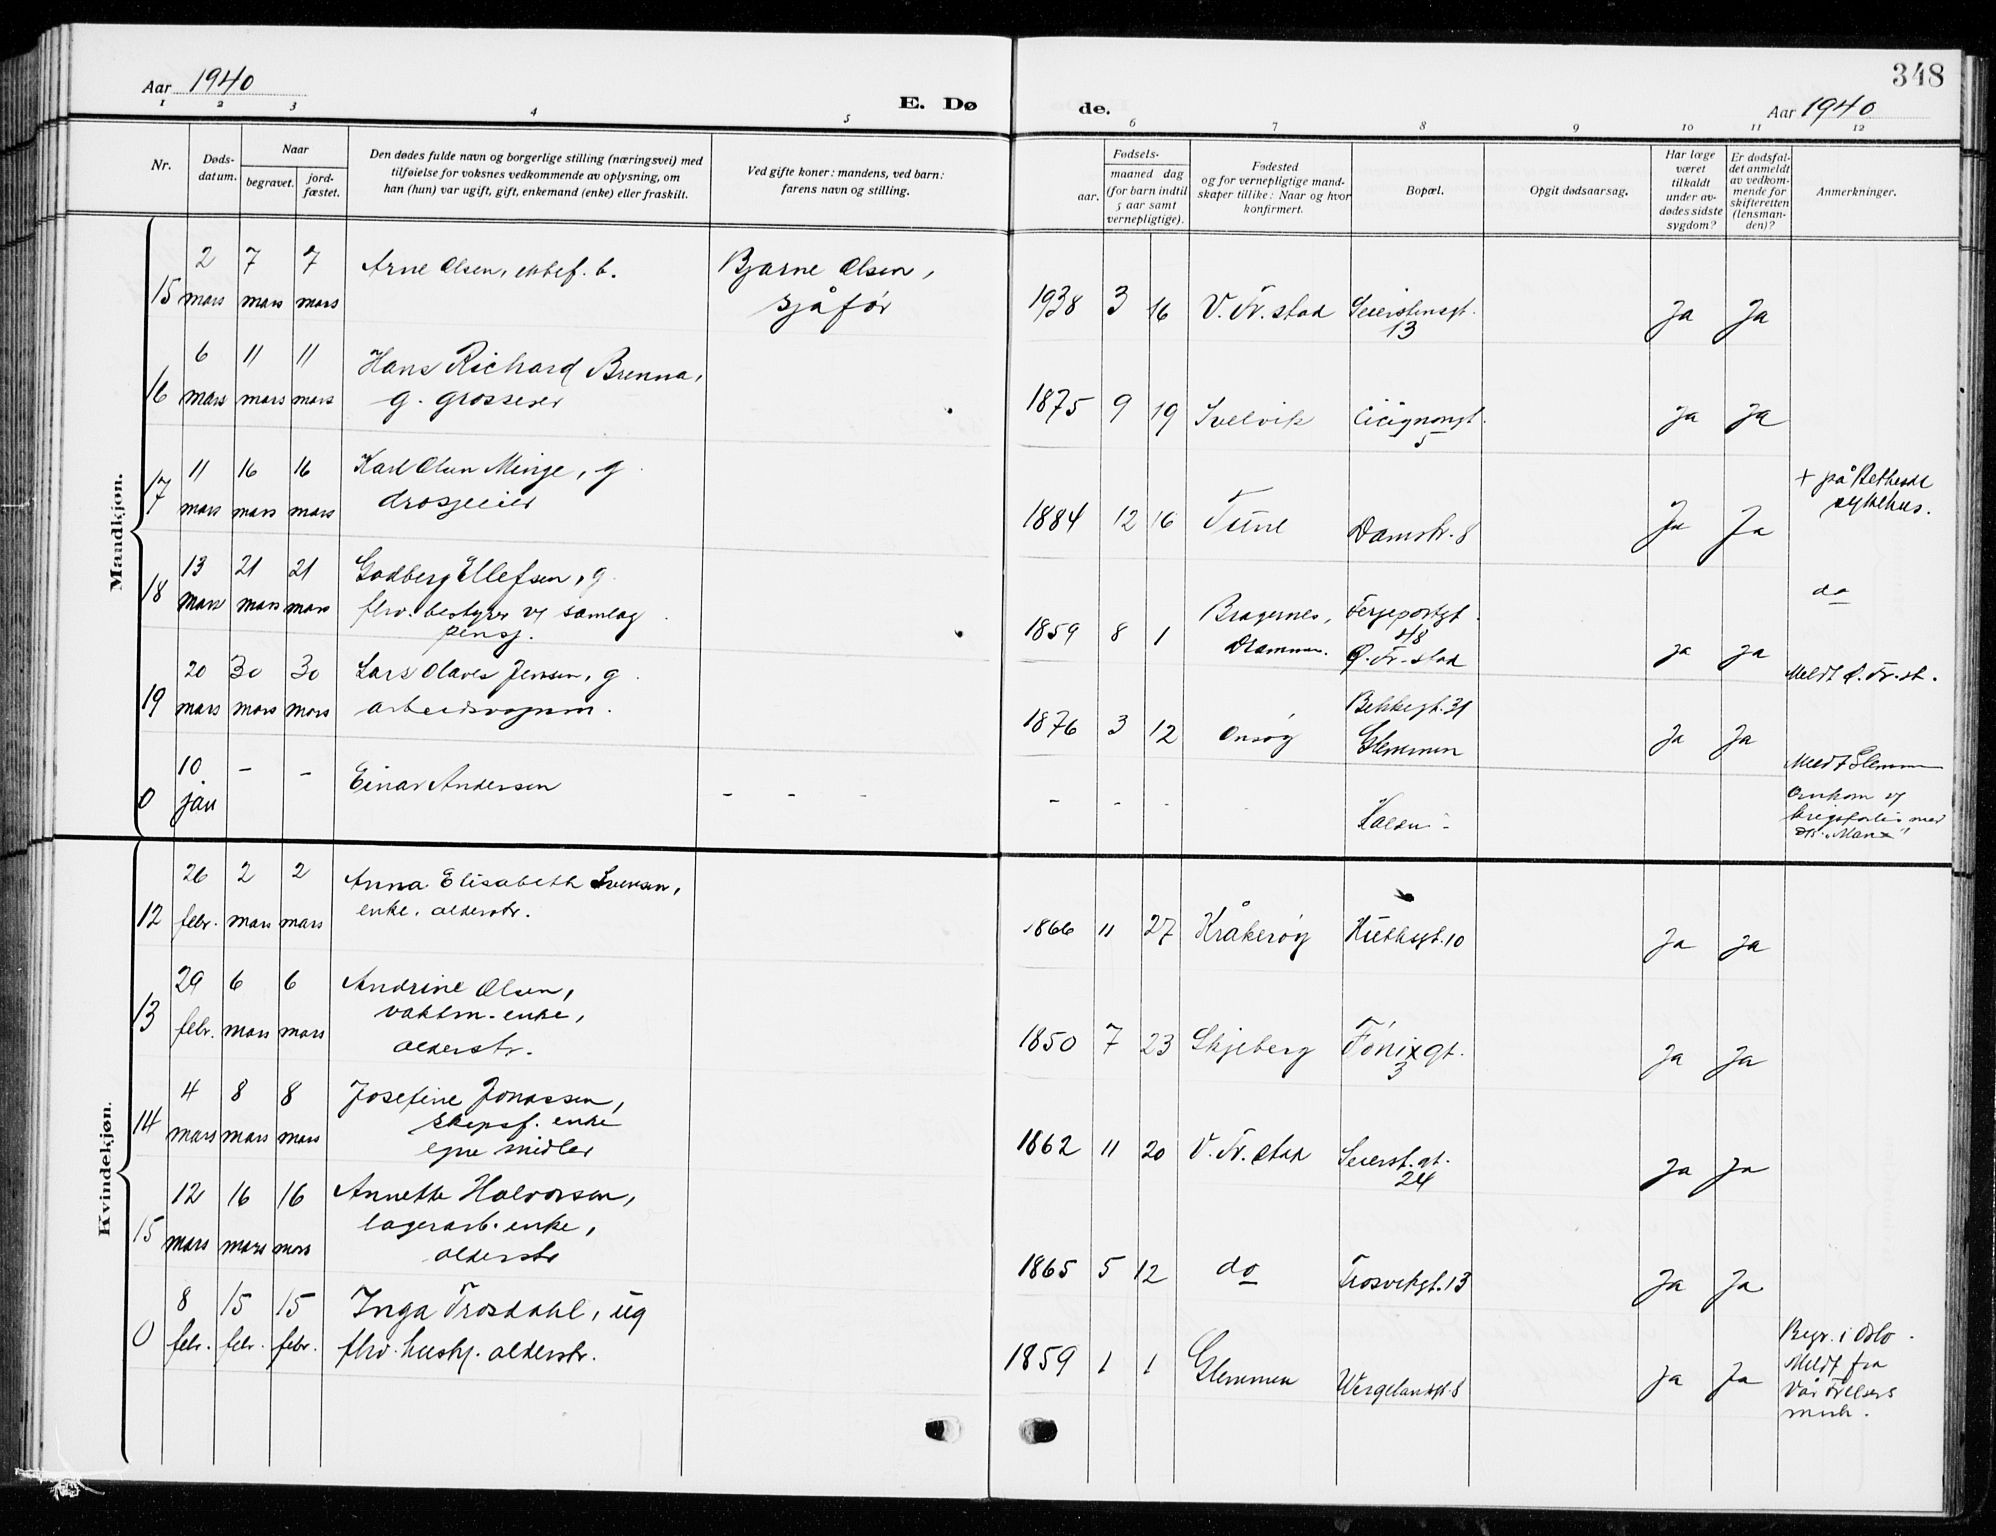 348
Aar 1940
E. Dø de.
Aar 1940
1 2 3 4 5 6 7 8 9 10 11 12
Nr.
Døds-
datum.
Naar
begravet.
jord-
fæstet.
Den dødes fulde navn og borgerlige stilling (næringsvei) med
tilføielse for voksnes vedkommende av oplysning, om
han (hun) var ugift, gift, enkemand (enke) eller fraskilt.
Ved gifte koner: mandens, ved barn:
farens navn og stilling.
Fødsels-
aar.
maaned dag
(for barn indtil
5 aar samt
vernepligtige).
Fødested
og for vernepligtige mand-
skaper tillike: Naar og hvor
konfirmert.
Bopæl.
Opgit dødsaarsag.
Har læge
været
tilkaldt
under av-
dødes sidste
sygdom?
Er dødsfal-
det anmeldt
av vedkom-
mende for
skifteretten
(lensman-
den)?
Anmerkninger.
Mandkjøn.
15
2 mars
7 mars
7 mars
Arne Olsen, ektef. b.
Bjarne Olsen,
sjåfør
1938 3 16
V. Fr. stad
Seierstensgt.
13
Ja Ja
16
6 mars
11 mars
11 mars
Hans Richard Brenna,
g. grosserer
1875 9 19
Svelvik
Cicignongt.
5
Ja Ja
17
11 mars
16 mars
16 mars
Karl Olsen Minge, g.
drosjeeier
1884 12 16
Tune
Damstr. 8
Ja Ja
+ på Bethesda
sykehus.
18
13 mars
21 mars
21 mars
Godberg Ellefsen, g.
fhv. bestyrer v/ samlag
pensj.
1859 8 1
Bragernes,
Drammen.
Fergeportgt.
Ø. Fr. stad
Ja Ja
do
Meldt Ø. Fr. st.
19
20 mars
30 mars
30 mars
Lars Olaves Jensen, g.
arbeidsvognm.
1876 3 12
Onsøy
Bekkegt. 31
Glemmen
Ja Ja
Meldt Glemmen
0
10 jan
- -
Einar Andersen
- - -
- - - -
Halden -
Omkom v/
krigsforlis med
"Manx"
Kvindekjøn.
12
26 febr.
2 mars
2 mars
Anna Elisabeth Svensen,
enke. alderstr.
1866 11 27
Kråkerøy
Huthsgt. 10
Ja Ja
13
29 febr.
6 mars
6 mars
Andrine Olsen,
vaktm. enke,
alderstr.
1850 7 23
Skjeberg
Fønixgt.
3
Ja Ja
14
4 mars
8 mars
8 mars
Josefine Jonassen,
skepsf. enke
egne midler
1862 11 20
V. Fr. stad
Seierst. gt.
24
Ja Ja
15
12 mars
16 mars
16 mars
Annette Halvorsen,
lagerarb. enke,
alderstr
1865 5 12
do
Trosvikgt. 13
Ja Ja
0
8 febr.
15 febr.
15 febr.
Inga Trosdahl, ug
fhv. hushj. alderstr.
1859 1 1
Glemmen
Wergelandsgt. 8
Ja Ja
Begr. i Oslo.
Meldt fra
Vår Frelsers
menh.